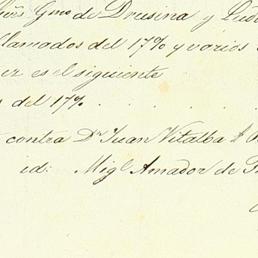 Gmo de Drusina y
llamados del 17% y varios
er es el siguiente
s del 17% . . . .
contra Dn Juan Vitalba
id: Migl Amador de